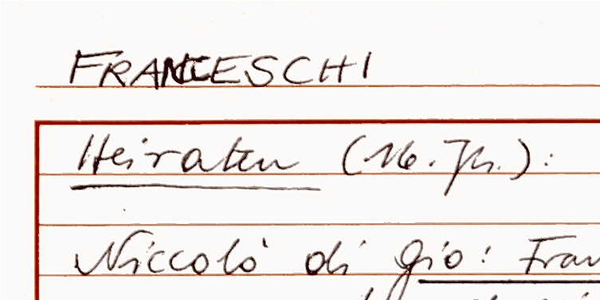 FRANCESCHI
Heiraten (16. Jh.):
Niccolò di Gio: Fran